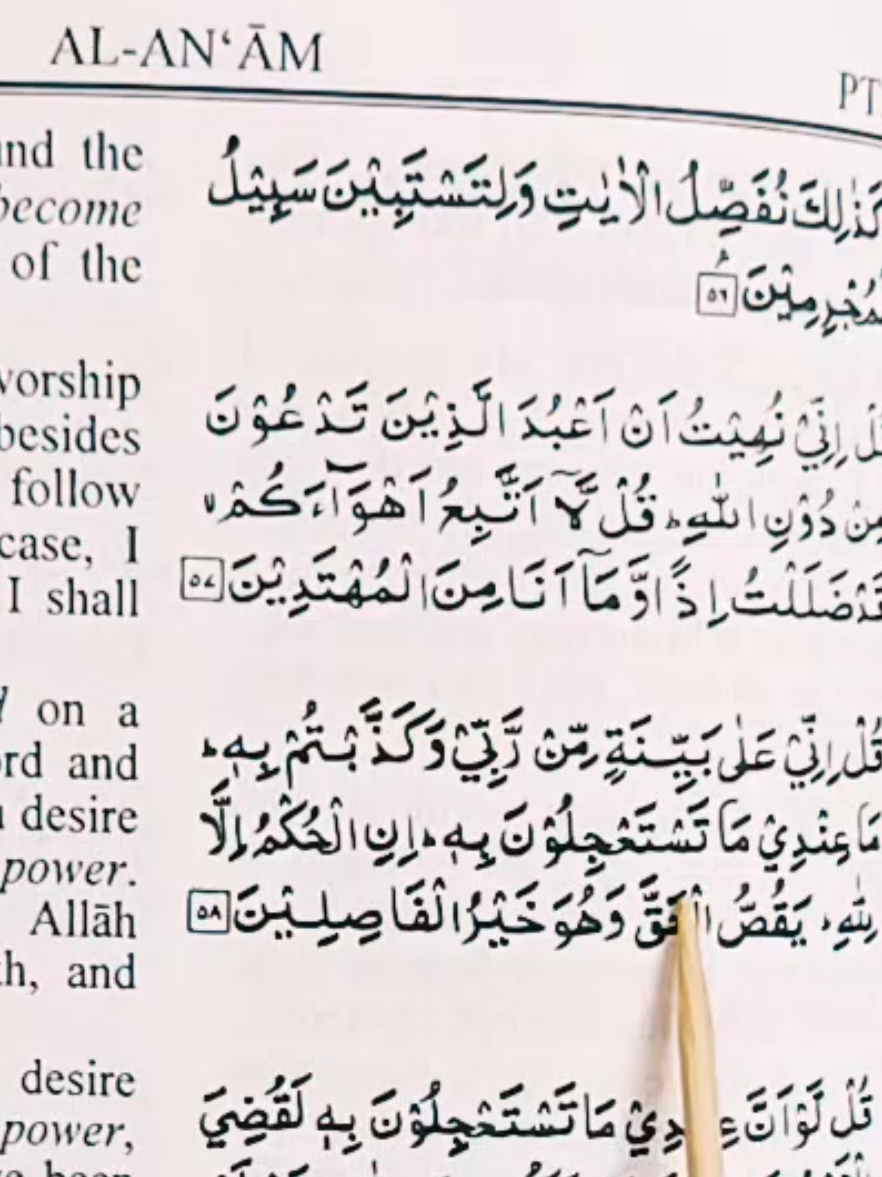 AL-AN‘ĀM
PT
nd the
become
of the
worship
besides
follow
case, I
I shall
on a
ord and
desire
power.
Allāh
h, and
desire
power,
been
كَذٰلِكَ نُفَصِّلُ الْاٰيٰتِ وَلِتَسْتَبِيْنَ سَبِيْلُ
لْمُجْرِمِيْنَ ٥٦
لْ اِنِّيْ نُهِيْتُ اَنْ اَعْبُدَ الَّذِيْنَ تَدْعُوْنَ
مِنْ دُوْنِ اللّٰهِ ؕ قُلْ لَّاۤ اَتَّبِعُ اَهْوَآءَكُمْ ۙ
قَدْ ضَلَلْتُ اِذًا وَّ مَاۤ اَنَا مِنَ الْمُهْتَدِيْنَ ٥٧
قُلْ اِنِّيْ عَلٰى بَيِّنَةٍ مِّنْ رَّبِّيْ وَكَذَّبْتُمْ بِهٖ ؕ
مَا عِنْدِيْ مَا تَسْتَعْجِلُوْنَ بِهٖ ؕ اِنِ الْحُكْمُ اِلَّا
لِلّٰهِ ؕ يَقُصُّ وَهُوَ خَيْرُ الْفَاصِلِيْنَ ٥٨
قُلْ لَّوْ اَنَّ مَا تَسْتَعْجِلُوْنَ بِهٖ لَقُضِيَ